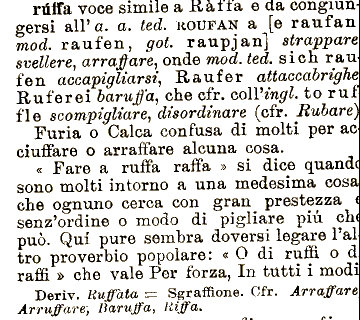 rúffa voce simile a Ràffa e da congiun-
gersi all' a. a. ted. ROUFAN a [e raufan
mod. raufen, got. raupjan] strappare
svellere, arraffare, onde mod. ted. sich rau-
fen accapigliarsi, Raufer attaccabrighe
Ruferei baruffa, che cfr. coll'ingl. to ruf-
fle scompigliare, disordinare (cfr. Rubare)
Furia o Calca confusa di molti per ac-
ciuffare o arraffare alcuna cosa.
« Fare a ruffa raffa » si dice quando
sono molti intorno a una medesima cosa
che ognuno cerca con gran prestezza e
senz'ordine o modo di pigliare piú che
può. Quí pure sembra doversi legare l'al-
tro proverbio popolare: « O di ruffi o di
raffi » che vale Per forza, In tutti i modi
Deriv. Ruffàta = Sgraffione. Cfr. Arraffare
Arruffare; Baruffa, Riffa.